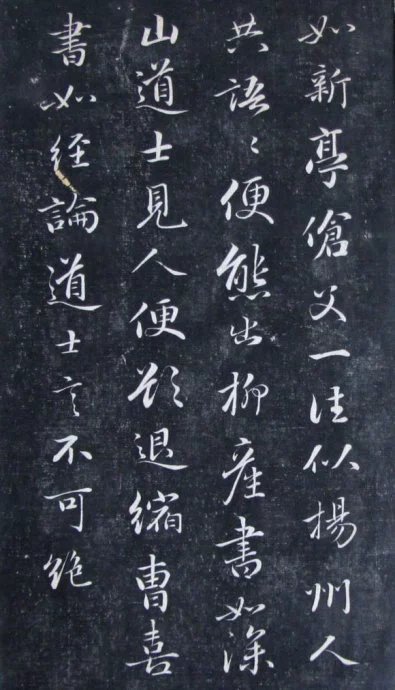 如新亭傖父一往似揚州人
共語〻便態出柳產書如深
山道士見人便欲退縮曹喜
書如經論道士言不可絶